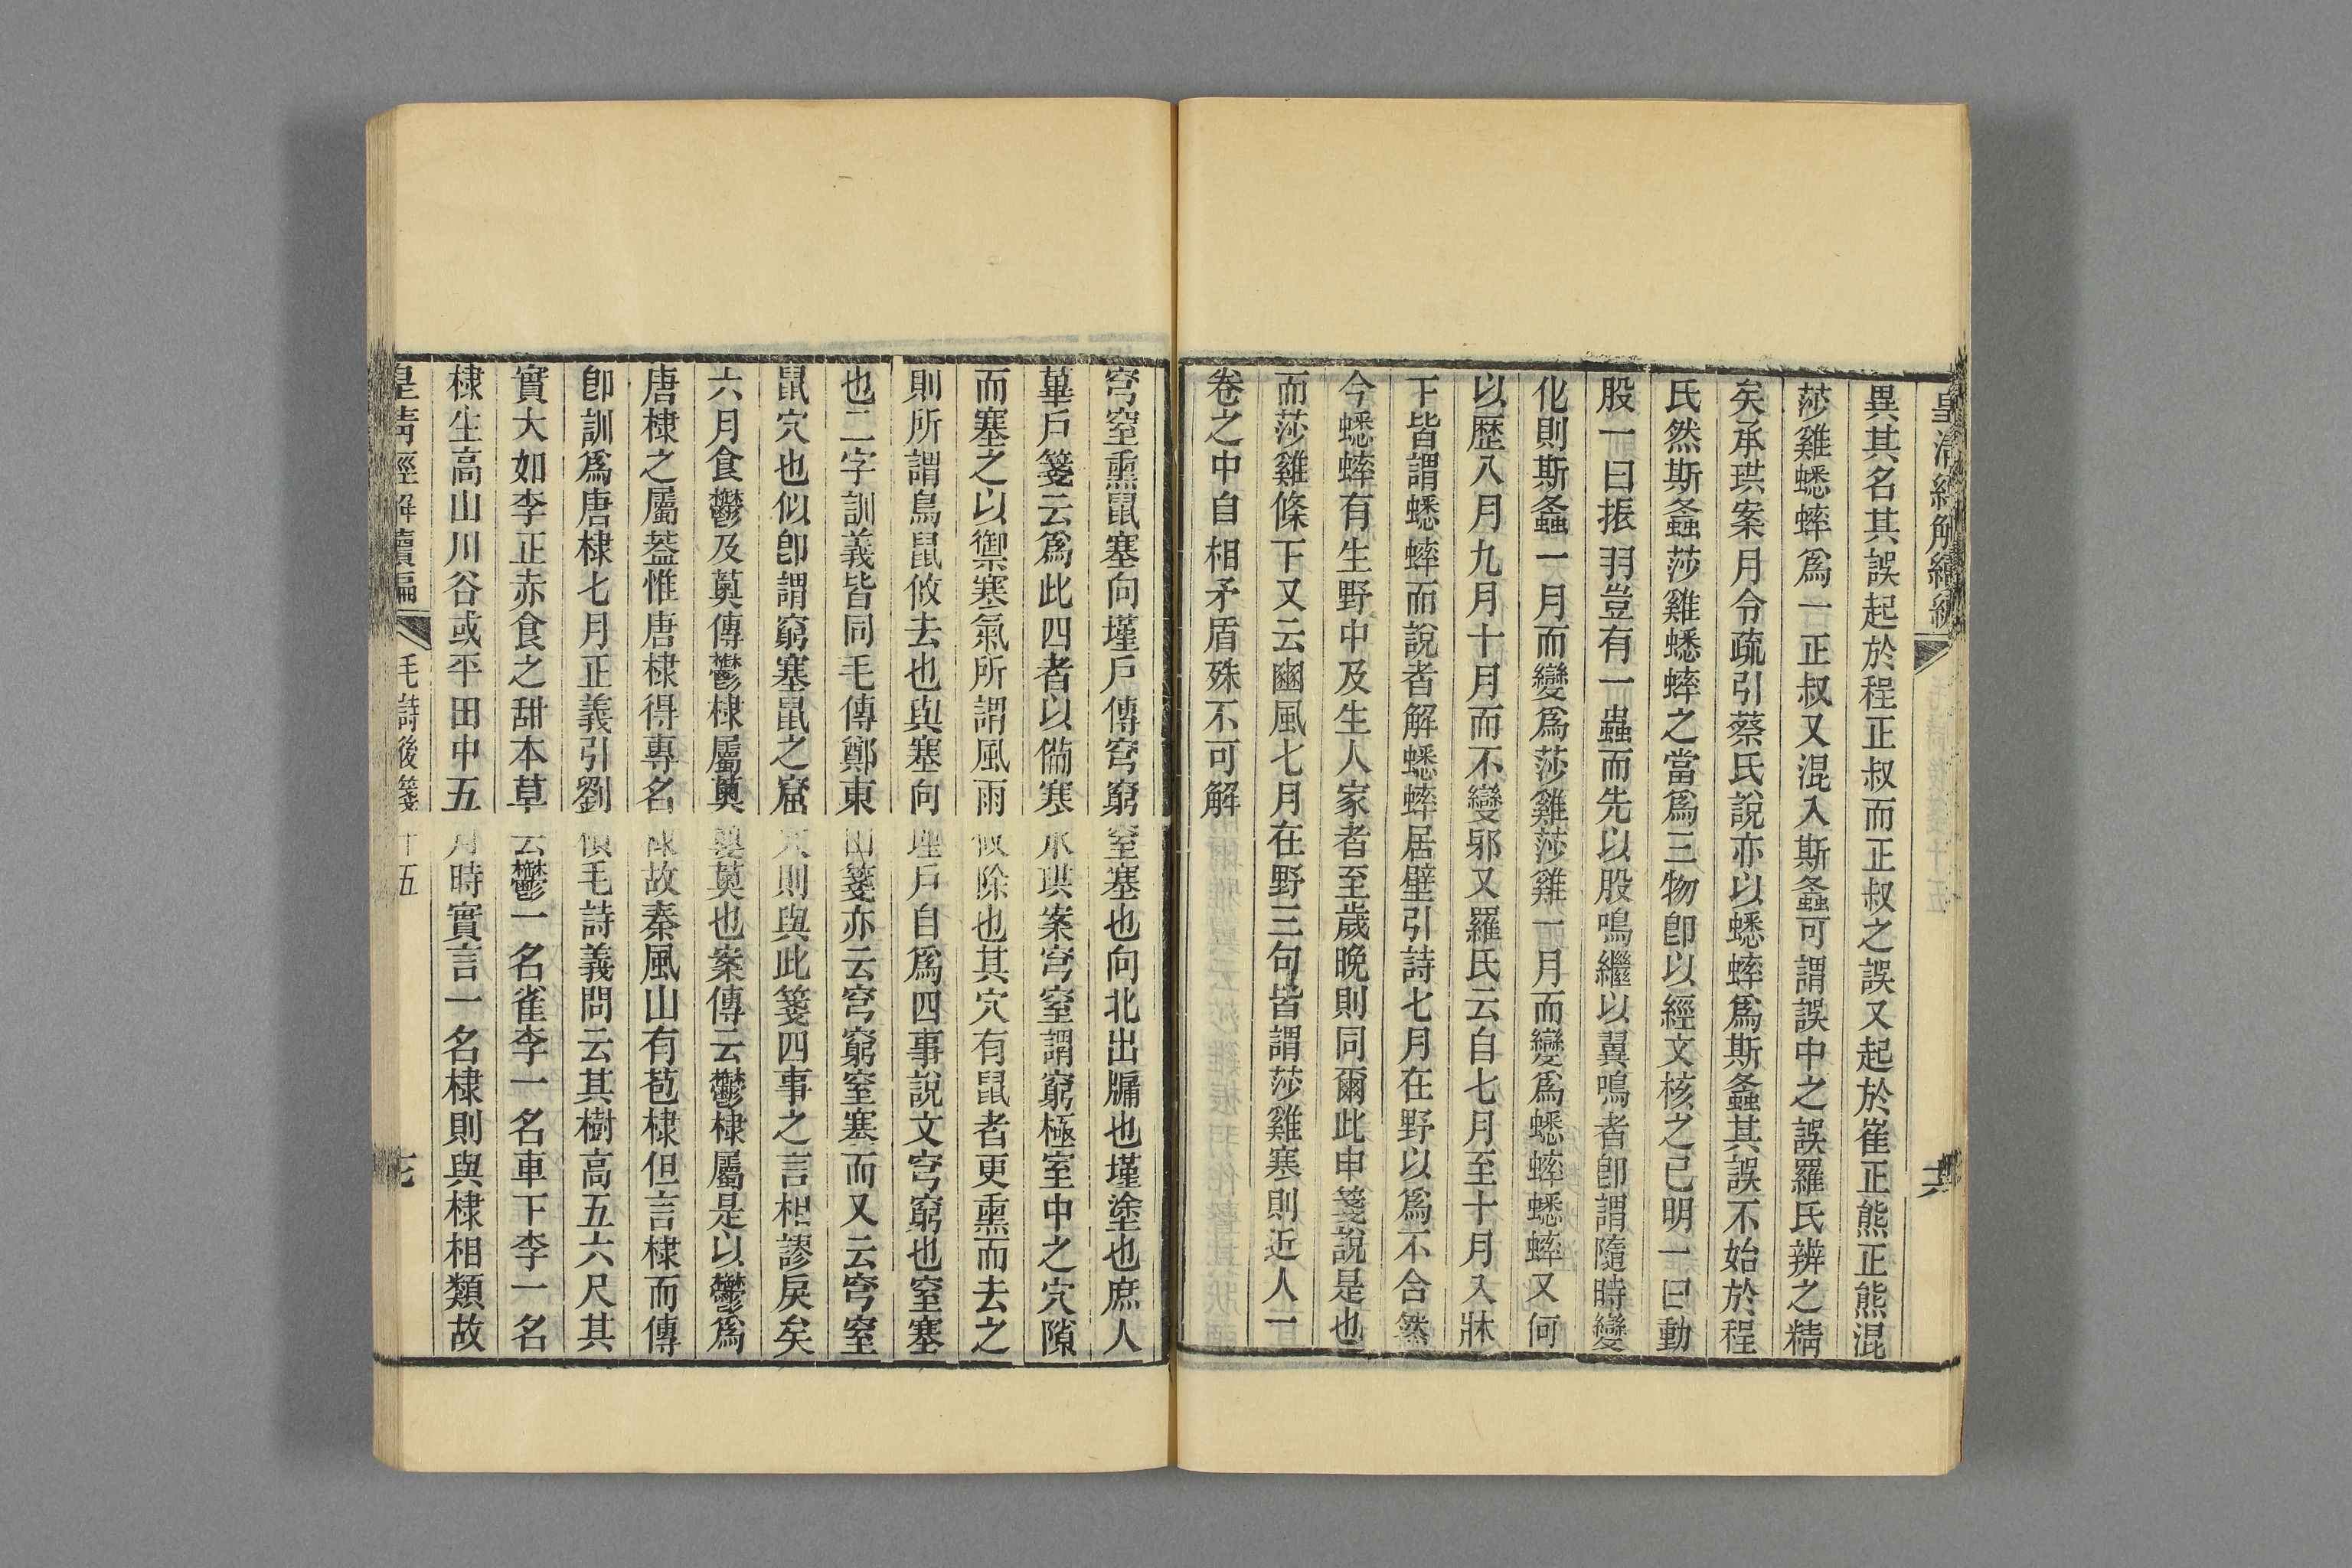 皇清經解續編
異其名其誤起於程正叔而正叔之誤又起於崔正熊正熊混
莎雞蟋蟀爲一正叔又混入斯螽可謂誤中之誤羅氏辨之精
矣承珙案月令疏引蔡氏說亦以蟋蟀爲斯螽其誤不始於程
氏然斯螽莎雞蟋蟀之當爲三物卽以經文核之已明一曰動
股一曰振羽豈有一蟲而先以股鳴繼以翼鳴者卽謂隨時變
化則斯螽一月而變爲莎雞莎雞一月而變爲蟋蟀蟋蟀又何
以歷八月九月十月而不變邪又羅氏云自七月至十月入牀
下皆謂蟋蟀而說者解蟋蟀居壁引詩七月在野以爲不合然
今蟋蟀有生野中及生人家者至歲晚則同爾此申箋說是也
而莎雞條下又云豳風七月在野三句皆謂莎雞寒則近人一
卷之中自相矛盾殊不可解
穹窒熏鼠塞向墐戶傳穹窮窒塞也向北出牖也墐塗也庶人
蓽戶箋云爲此四者以備寒承珙案穹窒謂窮極室中之穴隙
而塞之以禦寒氣所謂風雨攸除也其穴有鼠者更熏而去之
則所謂鳥鼠攸去也與塞向墐戶自爲四事說文穹窮也窒塞
也二字訓義皆同毛傳鄭東山箋亦云穹窮窒塞而又云穹窒
鼠穴也似卽謂窮塞鼠之窟穴則與此箋四事之言相謬戾矣
六月食鬱及薁傳鬱棣屬薁蘡薁也案傳云鬱棣屬是以鬱爲
唐棣之屬葢惟唐棣得專名棣故秦風山有苞棣但言棣而傳
卽訓爲唐棣七月正義引劉楨毛詩義問云其樹高五六尺其
實大如李正赤食之甜本草云鬱一名雀李一名車下李一名
棣生高山川谷或平田中五月時實言一名棣則與棣相類故
皇清經解續編 毛詩後箋 十五